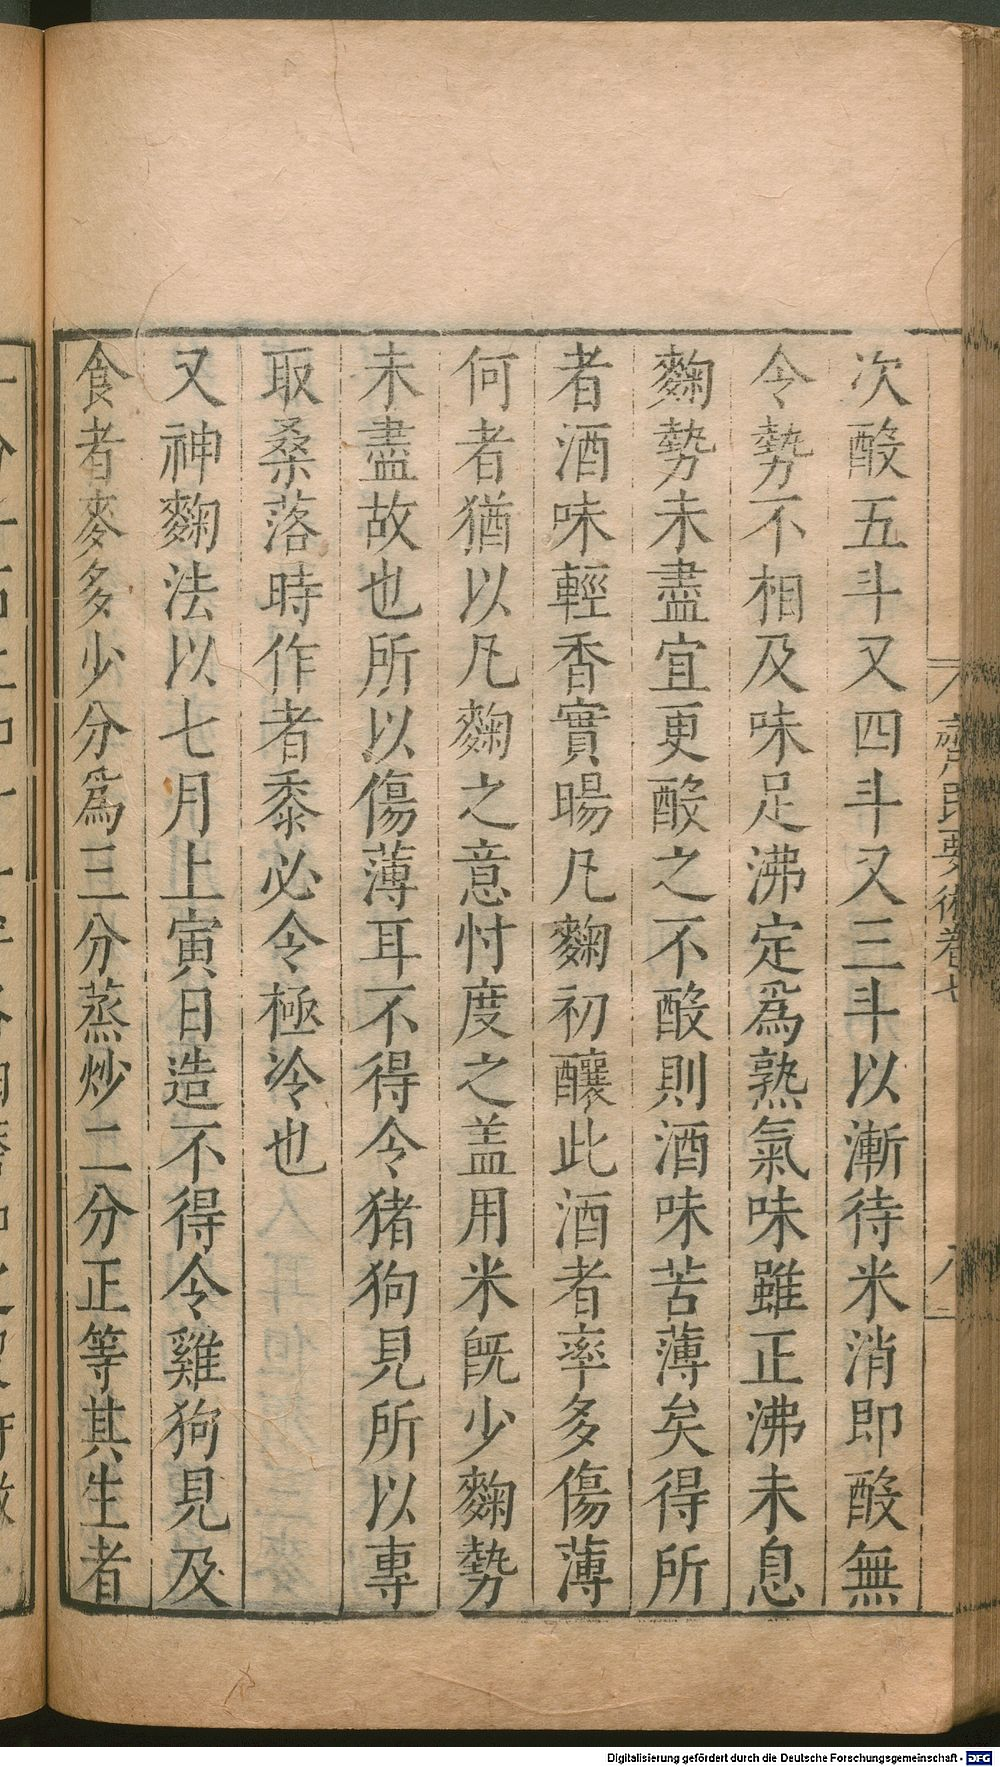 次酘五斗又四斗又三斗以漸待米消即酘無
令勢不相及味足沸定爲熟氣味雖正沸未息
麴勢未盡宜更酘之不酘則酒味苦薄矣得所
者酒味輕香實暘凡麴初釀此酒者率多傷薄
何者猶以凡麴之意忖度之盖用米旣少麴勢
未盡故也所以傷薄耳不得令猪狗見所以專
取桑落時作者黍必令極冷也
又神麴法以七月上寅日造不得令雞狗見及
食者麥多少分爲三分蒸炒二分正等其生者
齊民要術卷七
八
Digitalisierung gefördert durch die Deutsche Forschungsgemeinschaft - DFG